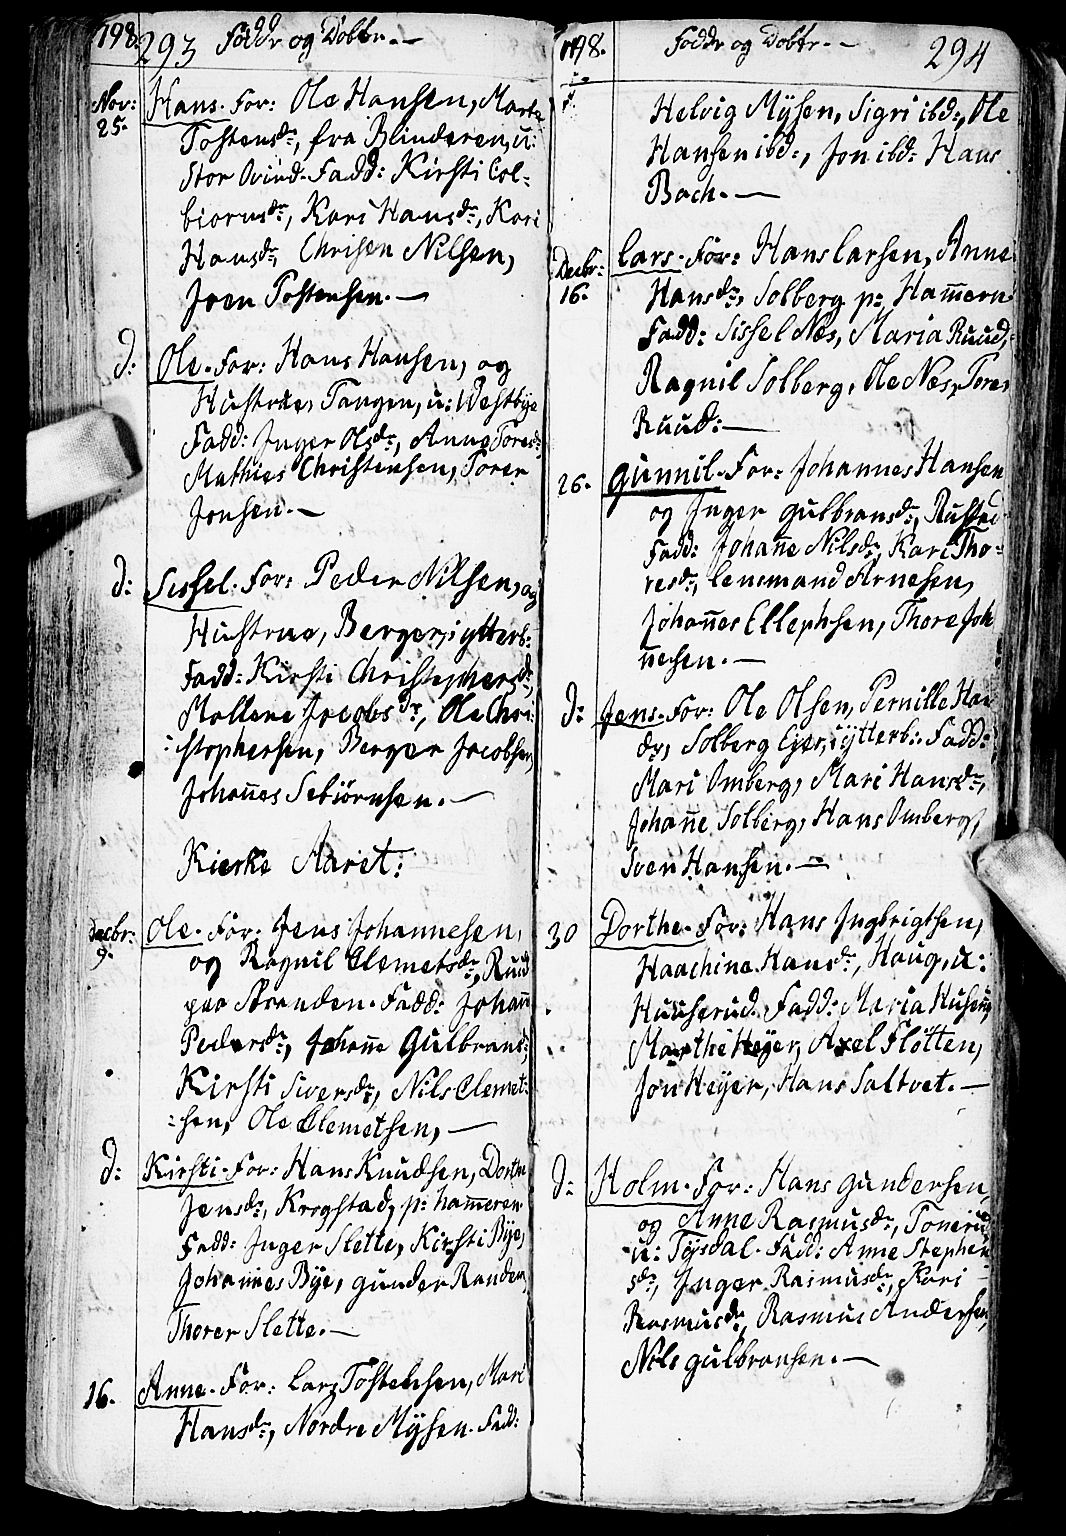 198. 293 Fødde og Døbte.
Nov: 25. Hans. For: Ole Hansen, Marte
Tostensdr, fra Blinderen, u:
Stor Ovind. Fadd: Kirsti Col-
biornsdr, Kari Hansdr, Kari
Hansdr, Chrisen Nilsen,
Joen Tostensen.—
d: Ole. For: Hans Hansen, og
Hustrue, Tangen, u: Westbye
Fadd: Inger Olsdr, Anne Toresdr,
Mathies Christensen, Torer
Jonsen.—
d: Sissel. For: Peder Nilsen, og
Hustrue, Berger, i ytterb:
Fadd: Kirsti Christophersdr,
Mallene Jacobsdr, Ole Chri
:stophersen, Berger Jacobsen,
Johannes Sebiørnsen.—
Kierke Aaret:
Decbr: 9. Ole. For: Jens Johannesen,
og Ragnil Clemetsdr, Ruud
paa Stranden. Fadd: Johan
Pedersdr, Johanne Gulbransdr,
Kirsti Siversdr, Nils Clemet:
:sen, Ole Clemetsen,—
d: Kirsti. For: Hans Knudsen, Dorthe
Jensdr, Krogstad, p: hammeren
Fadd: Inger Slette, Kirsti Bye,
Johannes Bye, gunder Randem,
Thorer Slette.—
16. Anne. For: Lars Tostensen, Mari
Hansdr, Nordre Mÿsen. Fadd:
198. Fødde og Døbte.— 294
Helvig Mÿsen, Sigri ibd:, Ole
Hansen ibd:, Jon ibd: Hans
Bach.—
Decbr: 16. Lars. For: Hans Larsen, Anne
Hansdr, Solberg p: Hamern
Fadd: Sissel Næs, Maria Ruud,
Ragnil Solberg, Ole Næs, Tores
Ruud:—
26. Gunnil. For: Johannes Hansen
og Inger Gulbransdr, Rustad
Fadd: Johanne Nilsdr, Kari Tho-
resdr, Lensmand Arnesen,
Johannes Ellephsen, Thore Joh
nesen.—
d: Jens. For: Ole Olsen, Pernille Han
dr, Solberg Ejer, i ytterb: Fadd:
Mari Omberg, Mari Hansdr,
Johanne Solberg, Hans Omberg,
Sven Hansen.—
30 Dorthe. For: Hans Ingbrigtsen,
Haachine Hansdr, Haug, u:
Huuserud. Fadd: Maria Huserud,
Marthe Heÿer, Axel Fløtten,
Jon Heÿer, Hans Saltvet.—
d: Holm. For: Hans gundersen,
og Anne Rasmusdr, Tonerud
u: Tÿsdal. Fadd: Anne Stephen
sdr, Inger Rasmusdr, Kari
Rasmusdr, Rasmus Andersen,
Nils gulbransen.—